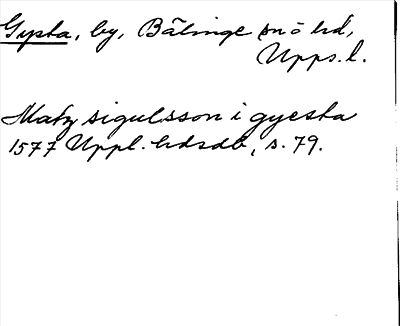 Gysta, by, Bälinge sn o hd,
Upps. l.
Matz sigulsson i gyesta
1577 Uppl. hdsdb, s. 79.